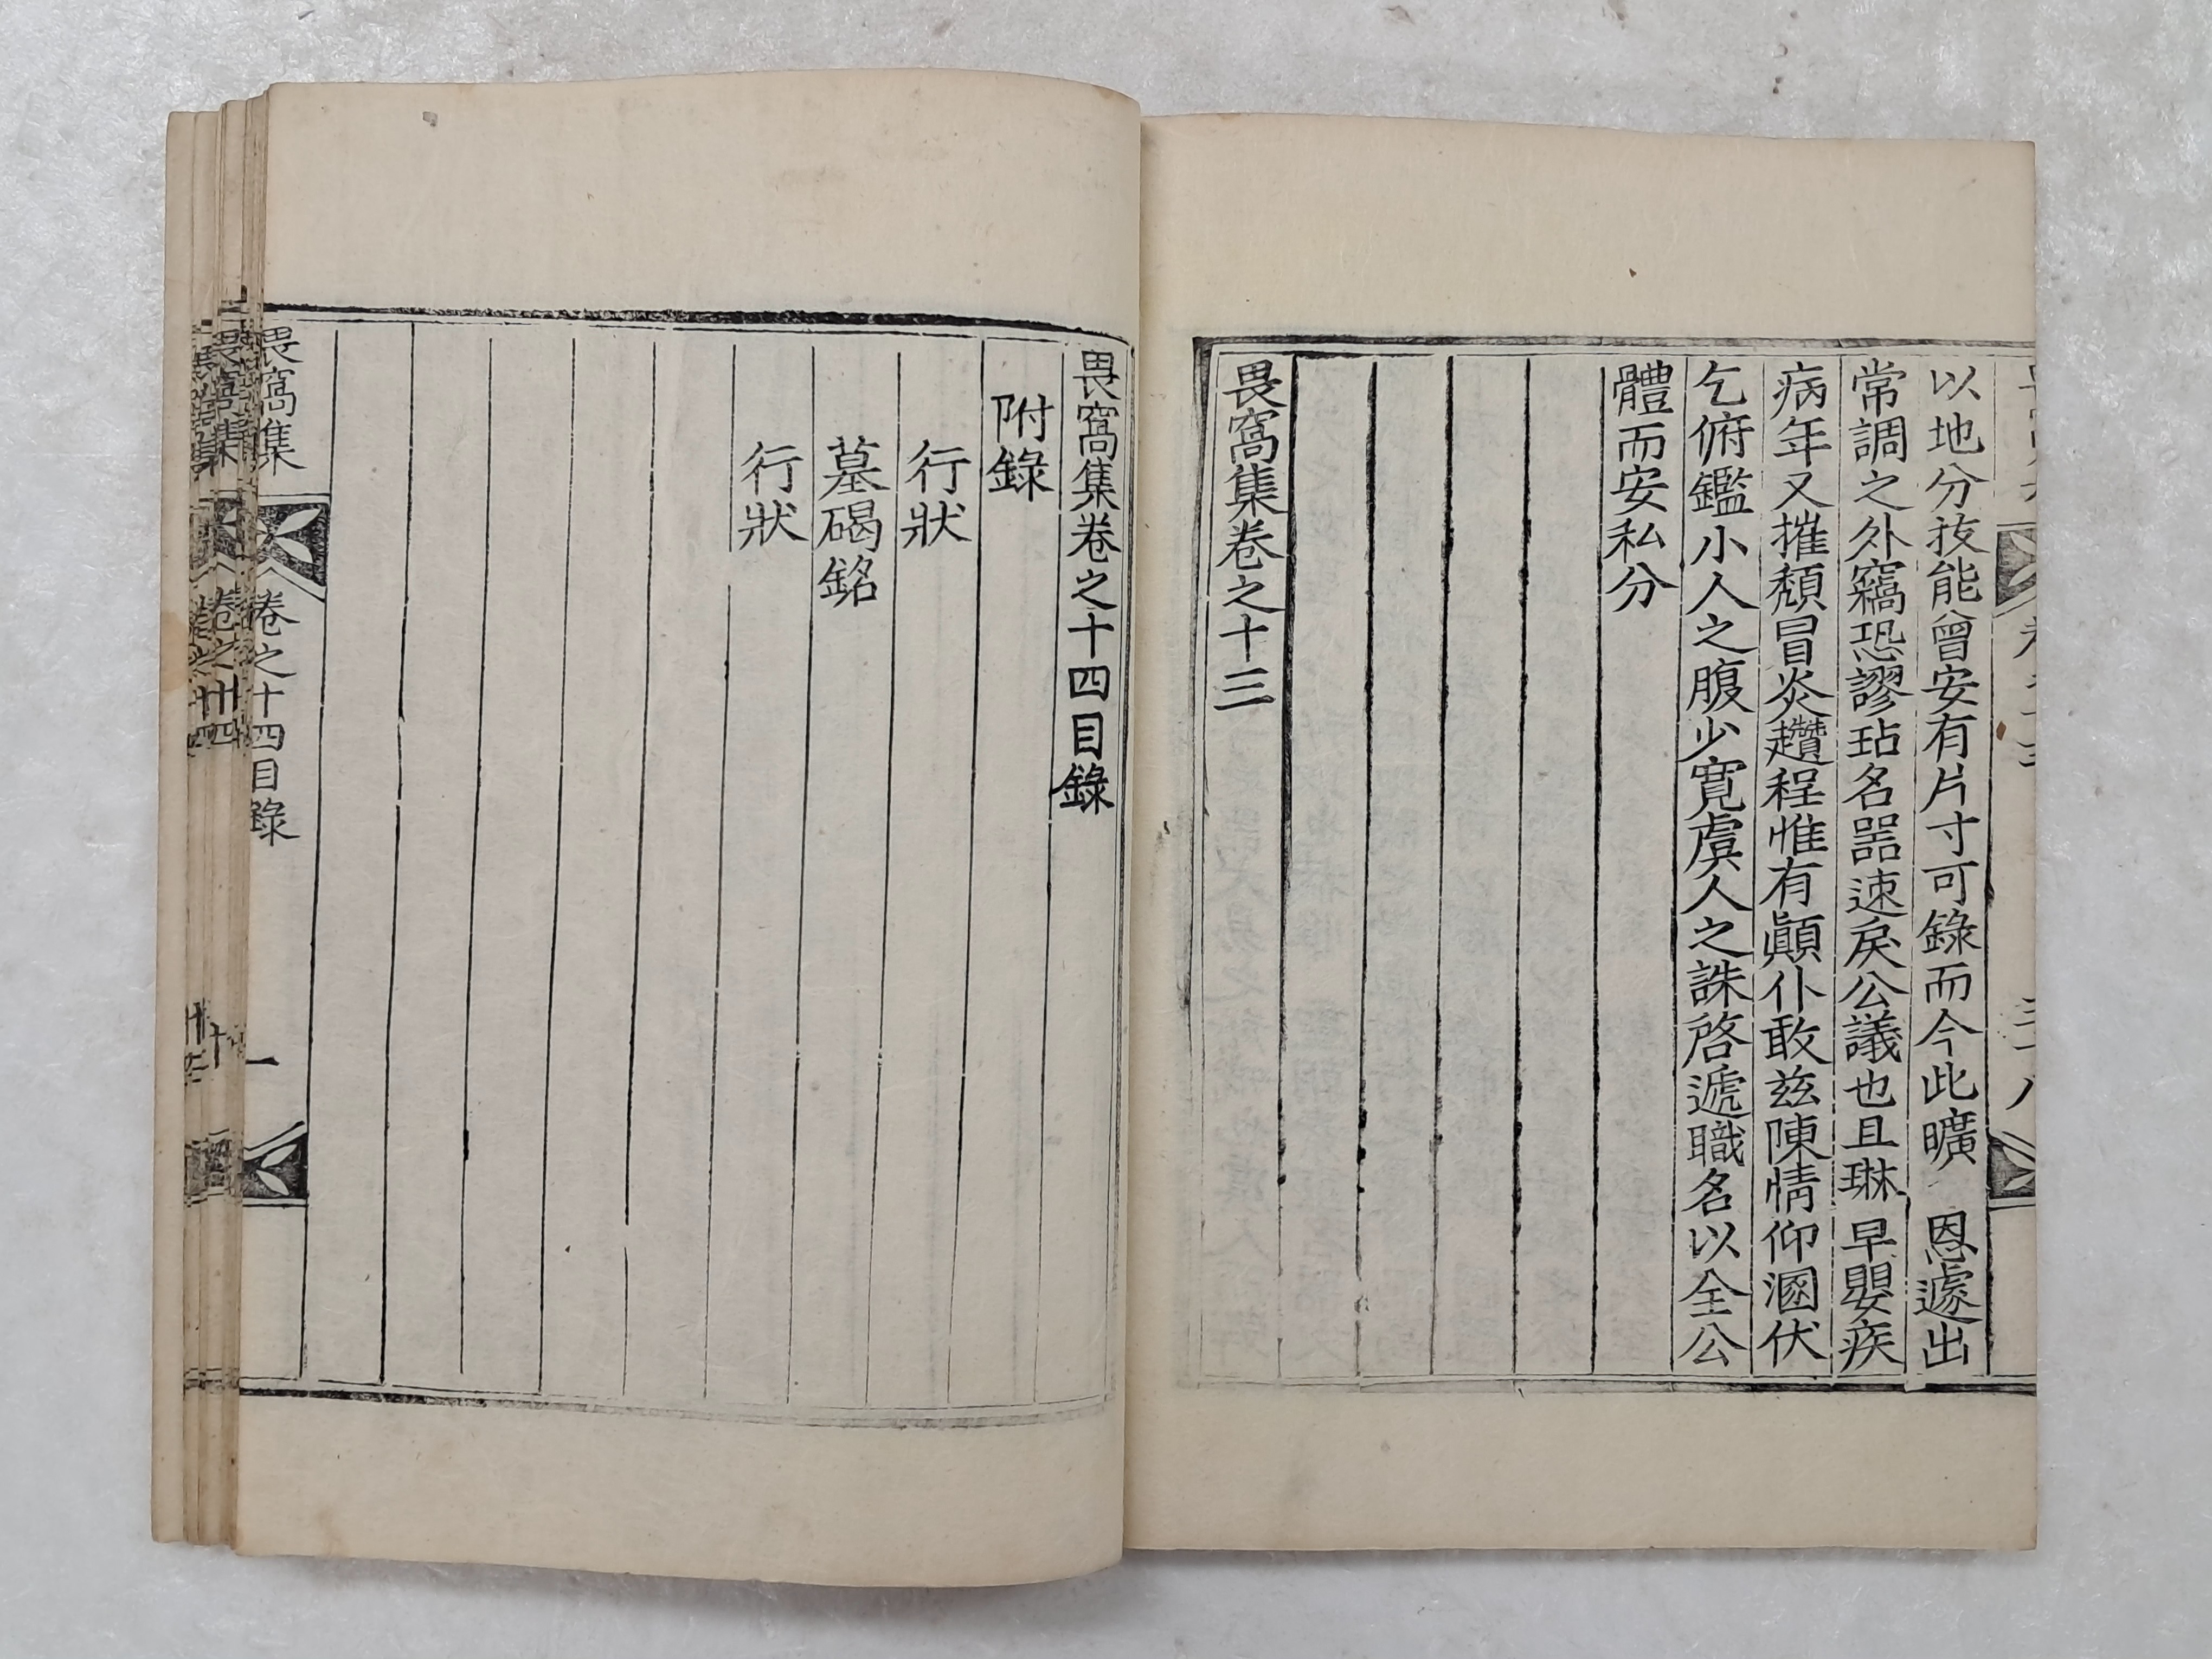 以地分技能曾安有片寸可錄而今此曠 恩遽出
常調之外竊恐謬玷名器速戾公議也且琳早嬰疾
病年又摧頹冒炎趲程惟有顚仆敢玆陳情仰溷伏
乞俯鑑小人之腹少寬虞人之誅啓遞職名以全公
體而安私分
畏窩集卷之十三
畏窩集卷之十四目錄
附錄
行狀
墓碣銘
行狀
畏窩集 卷之十四目錄 一